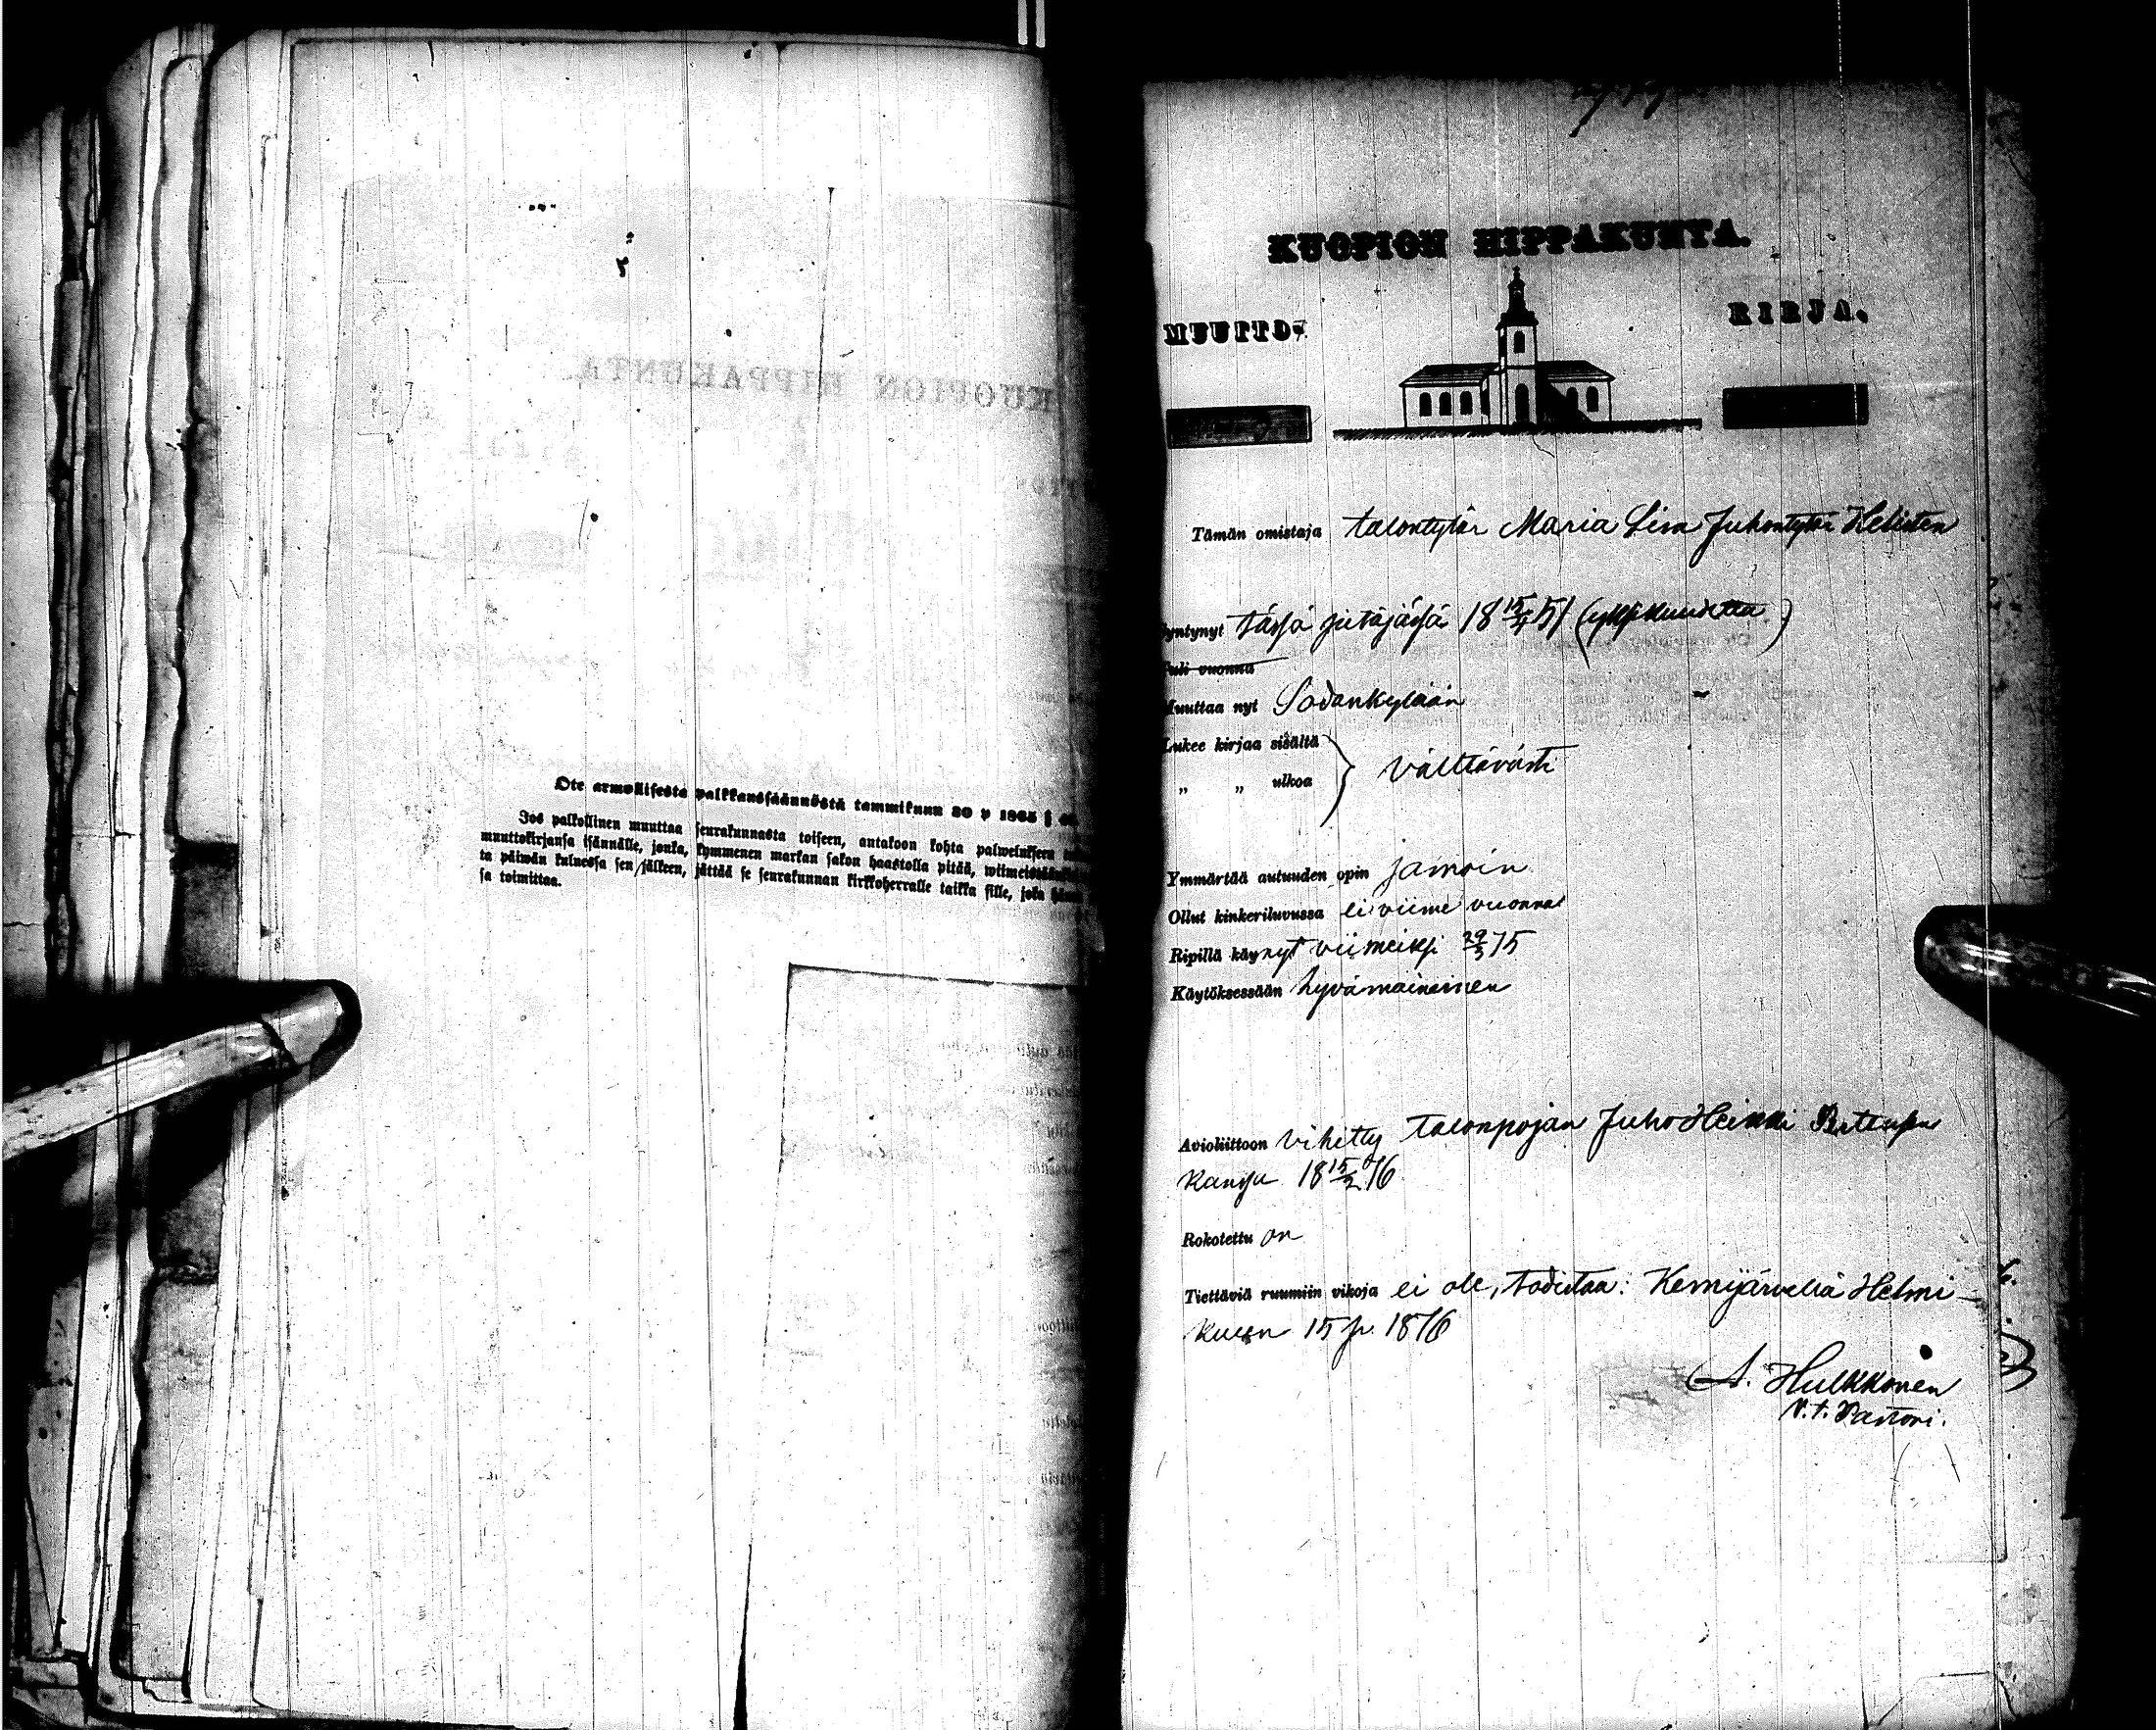 Ote armollisesta palkkaussäännöstä tammikuun 30 p 1865 §
Jos palkollinen muuttaa seurakunnasta toiseen, antakoon kohta palwelukseen
muuttokirjansa isännälle, jonka, kymmenen markan sakon haastolla pitää,
ta päiwän kuluessa sen jälkeen, jättää se seurakunnan kirkkoherralle taikka sille, joka
sa toimittaa.
KUOPION HIPPAKUNTA.
MUUTTO- KIRJA.
Tämän omistaja talontytär Maria Liisa Juhontytär
Syntynyt tässä pitäjässä 18 15/4 51
Tuli vuonna
Muuttaa nyt Sodankylään
Lukee kirjaa sisältä
„ „ ulkoa } välttävästi
Ymmärtää autuuden opin samoin
Ollut kinkeriluvussa ei viime vuonna
Ripillä käynyt viimeksi 29/3 75
Käytöksessään hyvämaineinen
Avioliittoon vihitty talonpojan Juho Heikki
kanssa 18 15/2 76
Rokotettu on
Tiettäviä ruumiin vikoja ei ole, todistaa: Kemijärvellä Helmi-
kuun 15 p. 1876
A. Hulkkonen
V.t. Pastori.